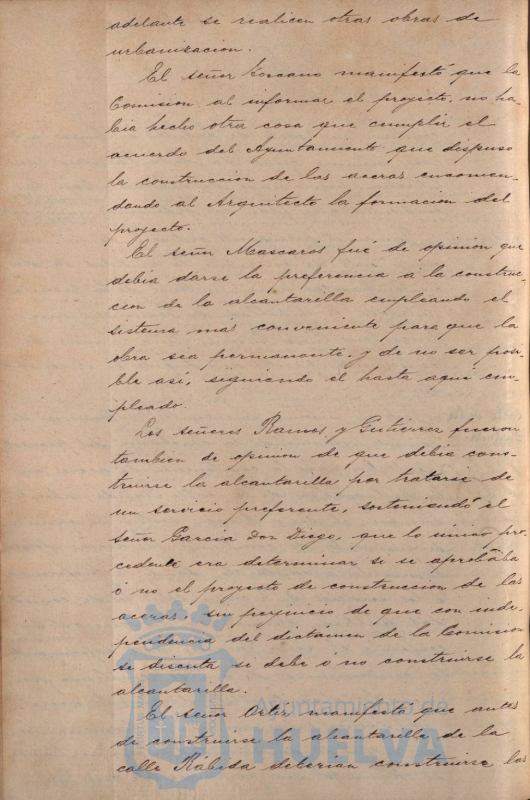 adelante se realicen otras obras de
urbanizacion.
El señor Toscano manifestó que la
Comision al informar el proyecto, no ha
bia hecho otra cosa que cumplir el
acuerdo del Ayuntamiento que dispuso
la construccion de las aceras encomen-
dando al Arquitecto la formacion del
proyecto.
El señor Mascarós fué de opinion que
debia darse la preferencia á la construc-
cion de la alcantarilla empleando el
sistema más conveniente para que la
obra sea permanante, y de no ser posi-
ble así, siguiendo el hasta aquí em-
pleado.
Los señores Ramos y Gutierrez fueron
tambien de opinion de que debia cons-
truirse la alcantarilla por tratarse de
un servicio preferente, sosteniendo el
señor García Don Diego, que lo único pro
cedente era determinar si se aprobaba
ó no el proyecto de construccion de las
aceras, sin perjuicio de que con inde-
pendencia del dictámen de la Comision
se discuta si debe ó no construirse la
alcantarilla.
El señor Ortiz manifestó que antes
de construirse la alcantarilla de la
calle Rábida deberian construirse las
Ayuntamiento de
HUELVA